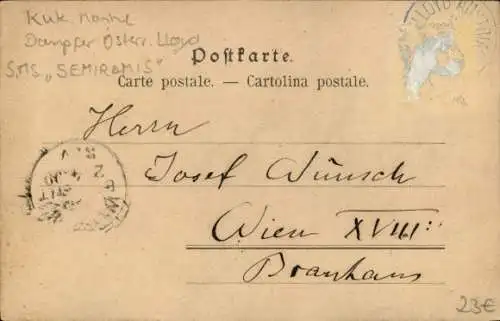 KuK. Marine
Dampfer Österr. Lloyd
S.M.S. „SEMIRAMIS"
LLOYD AUSTR
Postkarte.
Carte postale. — Cartolina postale.
Herrn
Josef Wünsch
Wien XVIII:
Brauhaus
23€